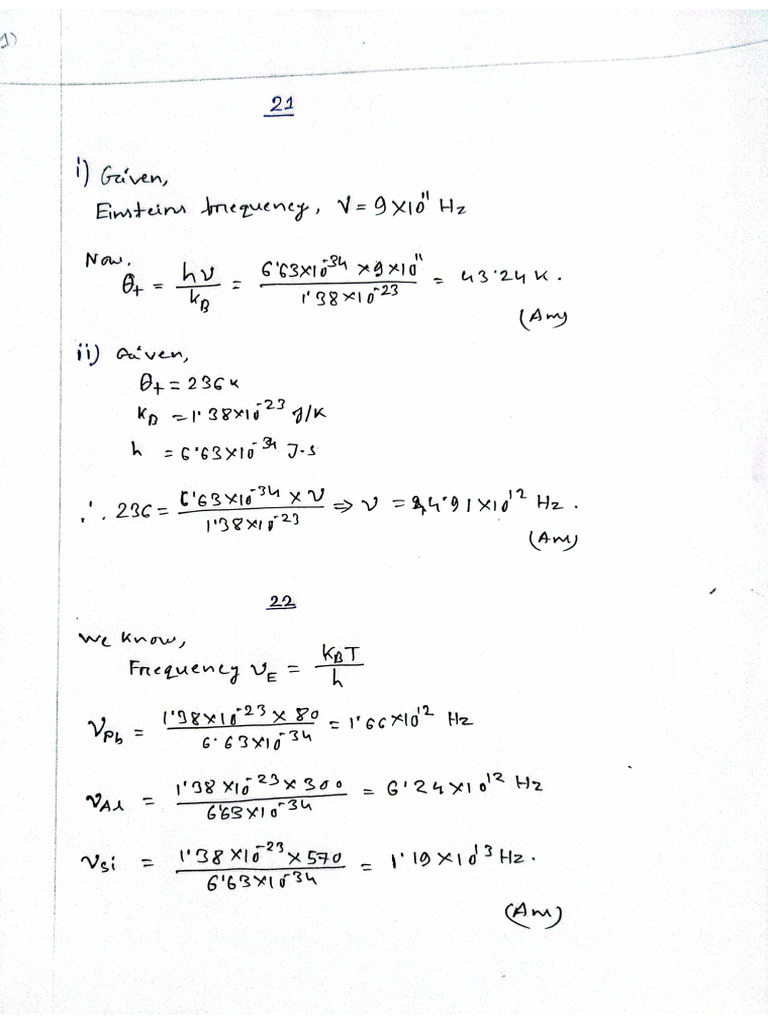 1)
21
i) Given,
Einsteins frequency, ν = 9×10¹¹ Hz
Now,
θ+ = hν / k_B = 6·63×10⁻³⁴ × 9×10¹¹ / 1·38×10⁻²³ = 43·24 K.
(Ans)
ii) Given,
θ+ = 236 K
k_B = 1·38×10⁻²³ J/K
h = 6·63×10⁻³⁴ J-s
∴ 236 = 6·63×10⁻³⁴ × ν / 1·38×10⁻²³ ⇒ ν = 4·91×10¹² Hz.
(Ans)
22
We know,
Frequency ν_E = k_B T / h
ν_Pb = 1·38×10⁻²³ × 80 / 6·63×10⁻³⁴ = 1·66×10¹² Hz
ν_Al = 1·38×10⁻²³ × 300 / 6·63×10⁻³⁴ = 6·24×10¹² Hz
ν_Si = 1·38×10⁻²³ × 570 / 6·63×10⁻³⁴ = 1·19×10¹³ Hz.
(Ans)